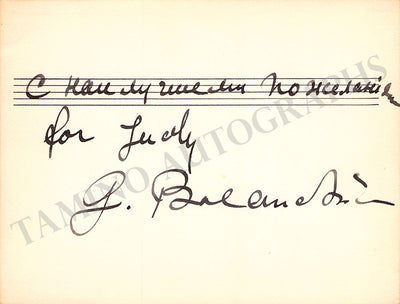 С наилучшими пожеланием
for Judy
G. Balanchine
TAMINO AUTOGRAPHS